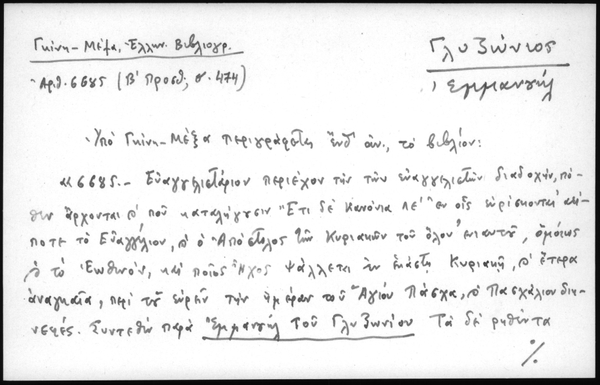 Γκίνη-Μέξα, Ἑλλην. Βιβλιογρ.
Γλυζώνιος
Ἐμμανουήλ
Ἀρθ. 6685 (Β' Προσθ., σ. 474)
Ὑπό Γκίνη-Μέξα περιγράφεται ἔνθ' ἀν., τό βιβλίον:
«6685.- Εὐαγγελιστάριον περιέχον τήν τῶν εὐαγγελιστῶν διαδοχήν, πό-
θεν ἄρχονται καὶ ποῦ καταλήγουσιν Ἔτι δέ κανόνια λε' ἐν οἷς εὑρίσκονται
ποτε τό Εὐαγγέλιον, καὶ ὁ Ἀπόστολος τῶν Κυριακῶν τοῦ ὅλου ἐνιαυτοῦ, ὁμοίως
καὶ τό Ἑωθινόν, καί ποῖος Ἦχος ψάλλεται ἐν ἑκάστῃ Κυριακῇ, καὶ ἕτερα
ἀναγκαῖα, περί τοῦ εὑρεῖν τήν ἡμέραν τοῦ Ἁγίου Πάσχα, καὶ Πασχάλιον διη-
νεκές. Συντεθέν παρά Ἐμμανουήλ τοῦ Γλυζωνίου Τά δέ ῥηθέντα
%